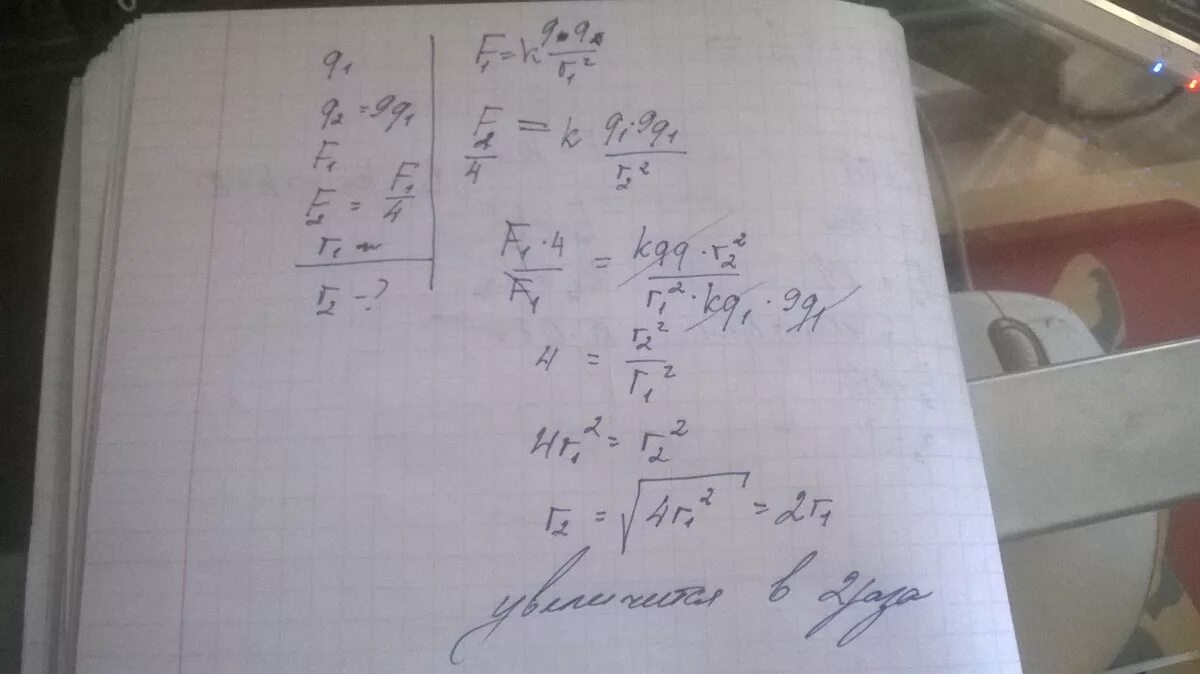 q₁
q₂ = 9q₁
F₁
F₂ = F₁/4
r₁
r₂ - ?
F₁ = k q₁q₂/r₁²
F₂/4 = k q₁·9q₁/r₂²
F₁·4/F₁ = kqq·r₂²/r₁²·kq₁·9q₁
4 = r₂²/r₁²
4r₁² = r₂²
r₂ = √4r₁² = 2r₁
увеличится в 2 раза